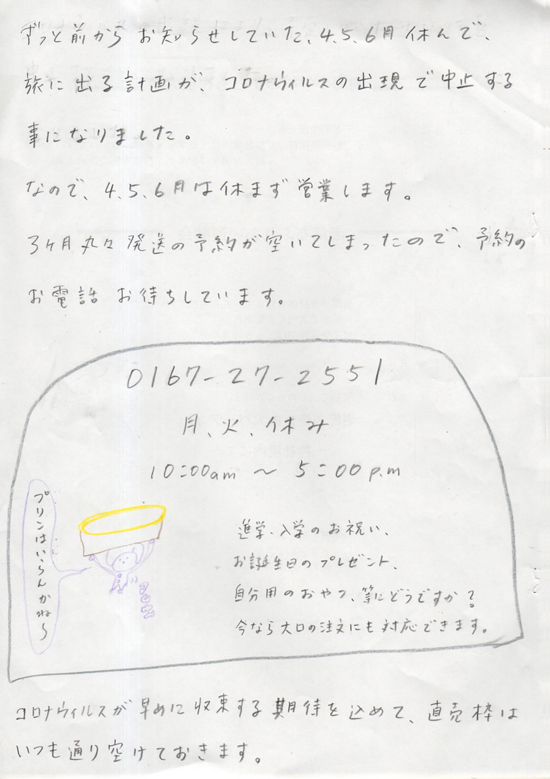 ずっと前からお知らせしていた、4.5.6月休んで、
旅に出る計画が、コロナウィルスの出現で中止する
事になりました。
なので、4.5.6月は休まず営業します。
3ヶ月丸々発送の予約が空いてしまったので、予約の
お電話お待ちしています。
0167-27-2551
月、火、休み
10:00am ～ 5:00p.m
プリンはいらんかね～
進学、入学のお祝い、
お誕生日のプレゼント、
自分用のおやつ、等にどうですか?
今なら大口の注文にも対応できます。
コロナウィルスが早めに収束する期待を込めて、直売枠は
いつも通り空けておきます。